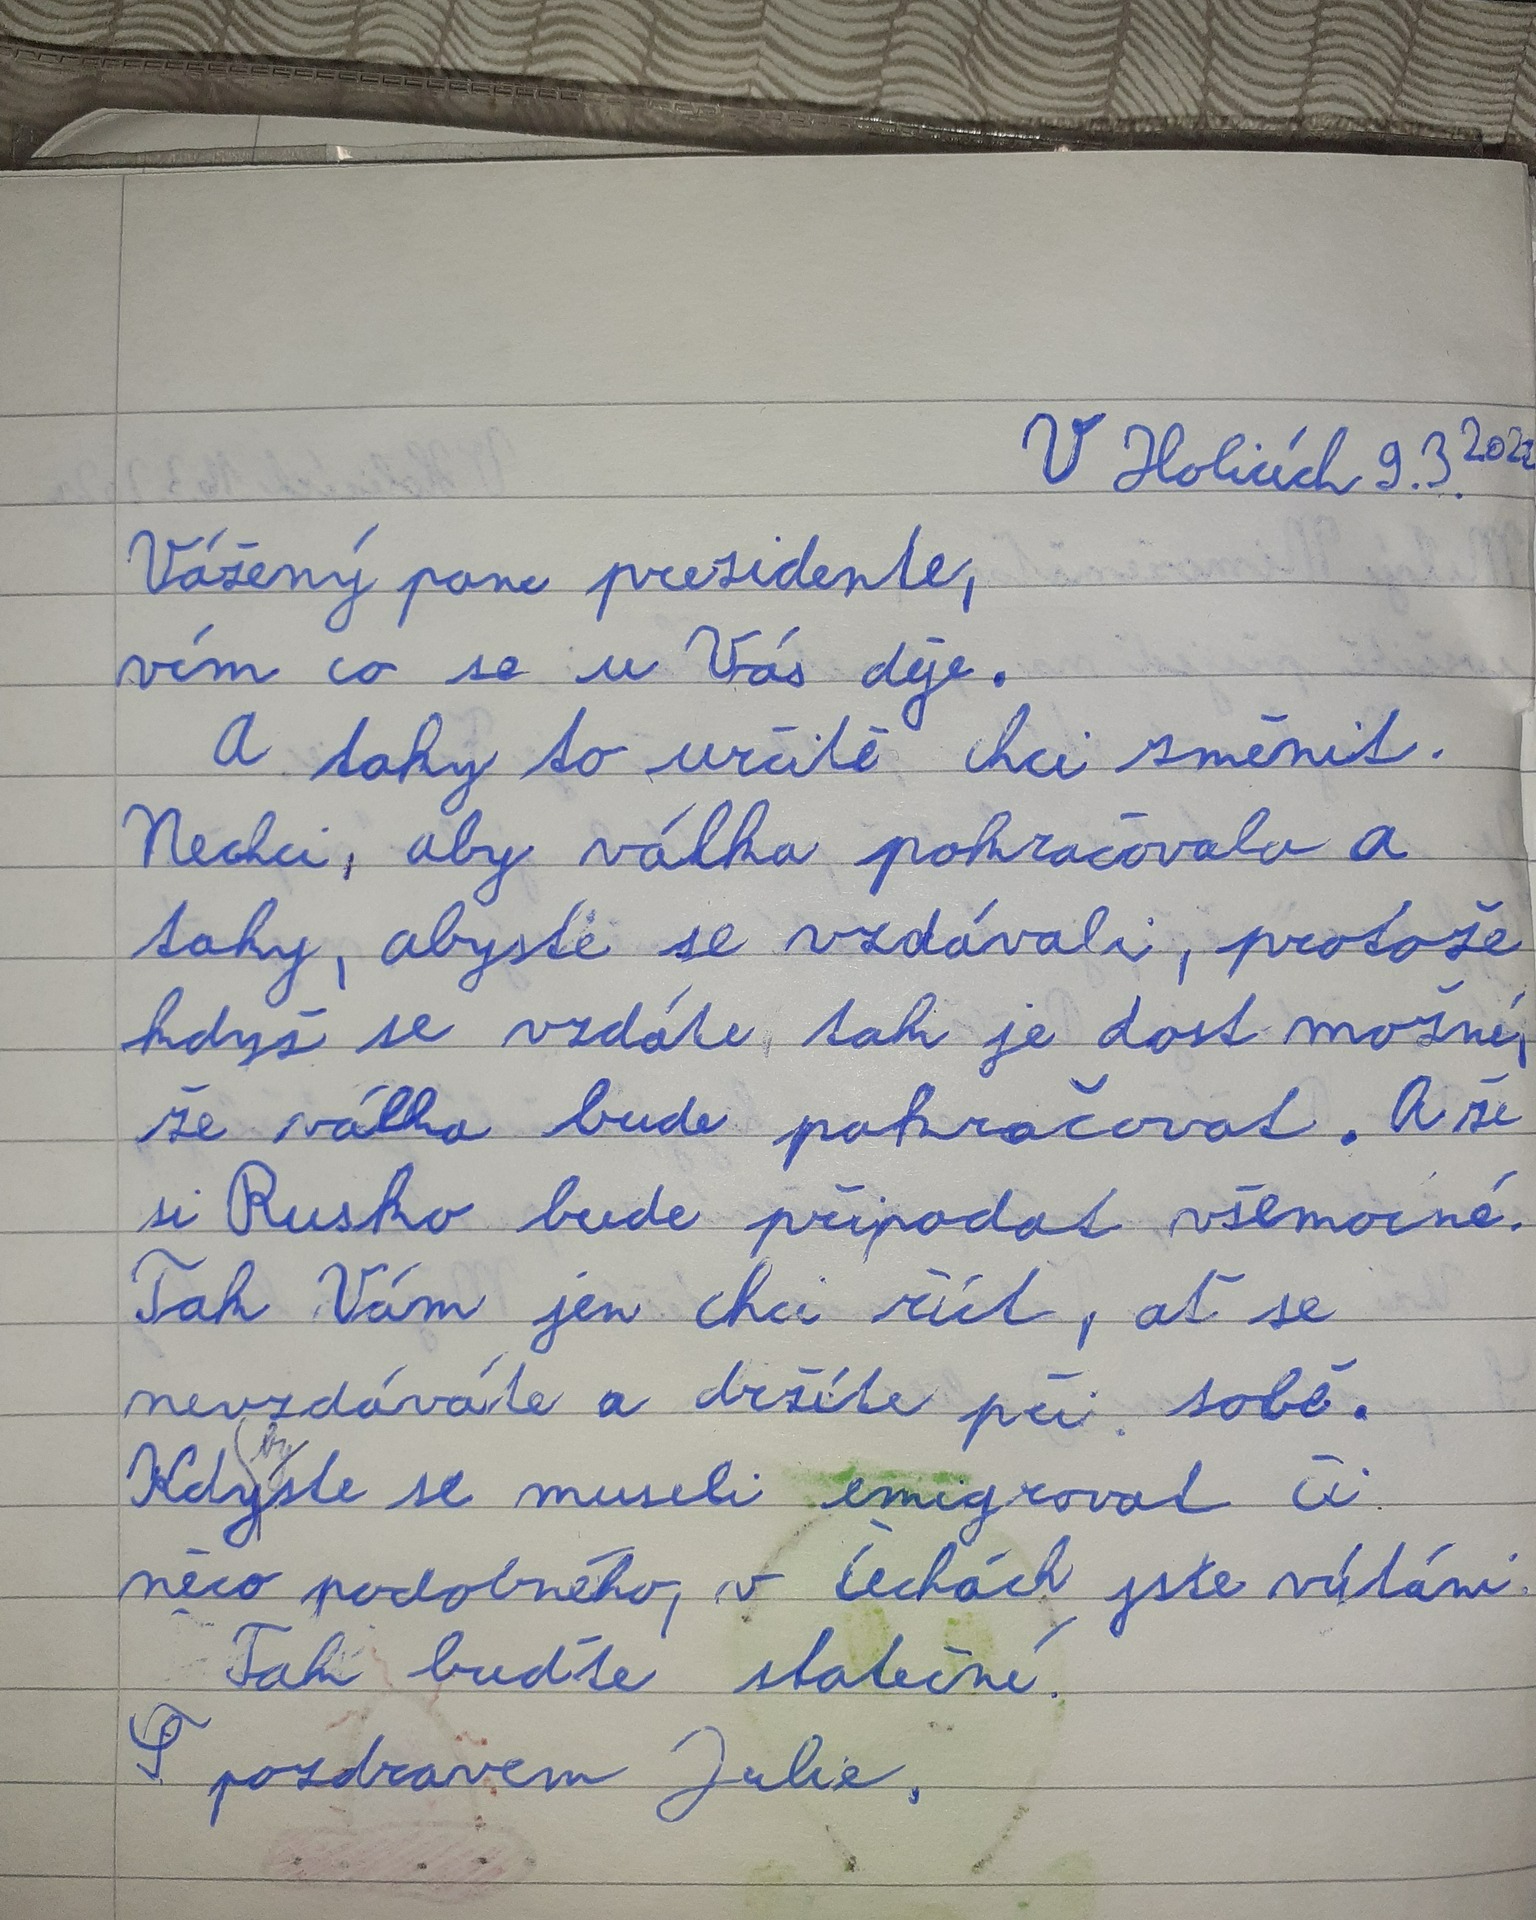 V Holicích 9.3.2022
Vážený pane prezidente,
vím co se u Vás děje.
A taky to určitě chci změnit.
Nechci, aby válka pokračovala a
taky, abyste se vzdávali, protože
když se vzdáte, tak je dost možné,
že válka bude pokračovat. A že
si Rusko bude připadat všemocné.
Tak Vám jen chci říct, ať se
nevzdáváte a držíte při sobě.
by
Kdyste se museli emigrovat či
něco podobného, v Čechách jste vítáni.
Tak buďte stateční.
S pozdravem Julie.